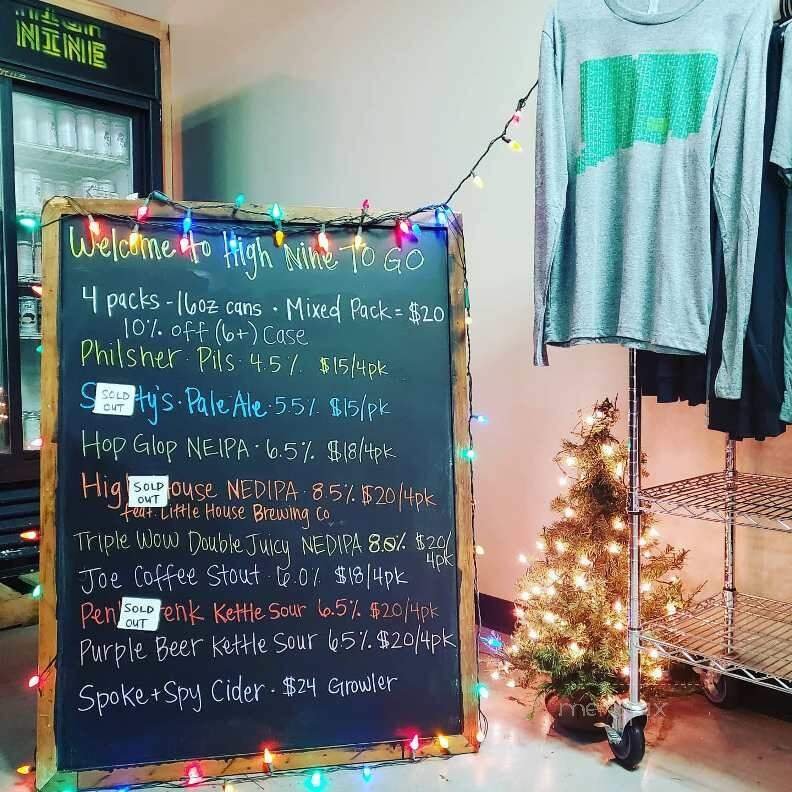 NINE
Welcome to High Nine TO GO
4 packs - 16oz cans · Mixed Pack = $20
10% off (6+) Case
Philsner · Pils · 4.5% $15/4pk
S ty's · Pale Ale · 5.5% $15/pk
SOLD
OUT
Hop Glop NEIPA · 6.5% $18/4pk
Hig ouse NEDIPA · 8.5% $20/4pk
SOLD
OUT
feat. Little House Brewing Co
Triple Wow Double Juicy NEDIPA 8.0% $20/
4pk
Joe Coffee Stout · 6.0% $18/4pk
Pen enk Kettle Sour 6.5% $20/4pk
SOLD
OUT
Purple Beer Kettle Sour 6.5% $20/4pk
Spoke + Spy Cider · $24 Growler